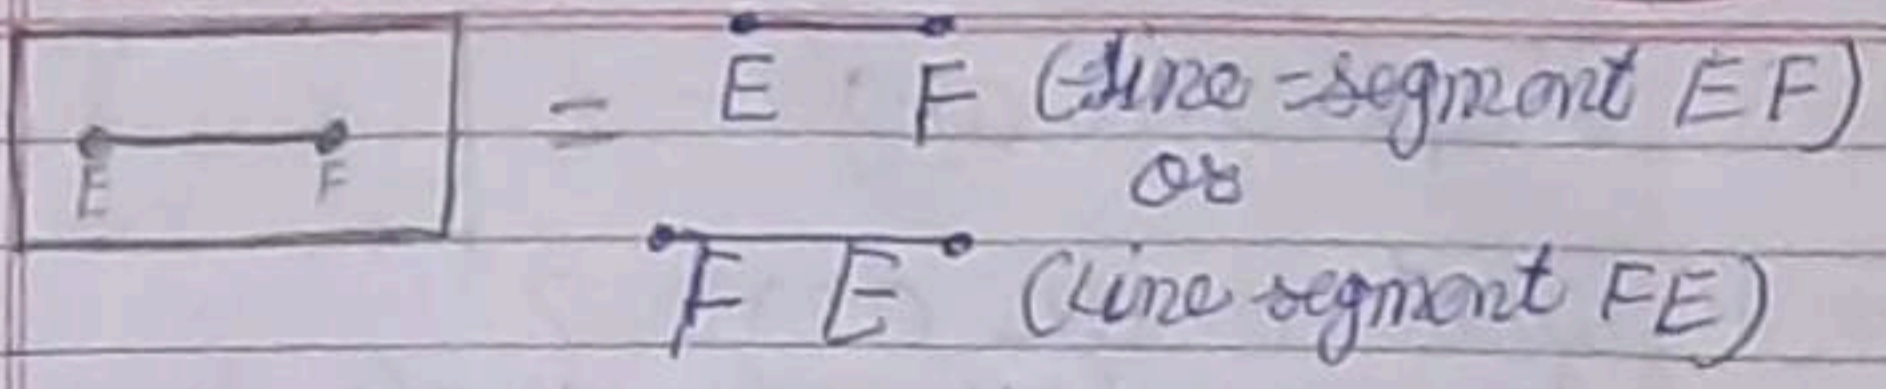 E F = E F (Line-segment EF)
or
F E (Line segment FE)